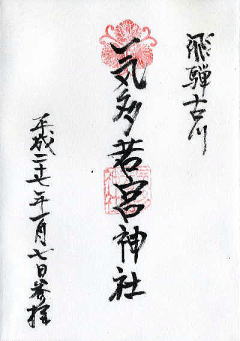 飛騨古川
気多若宮神社
平成二十七年一月七日参拝